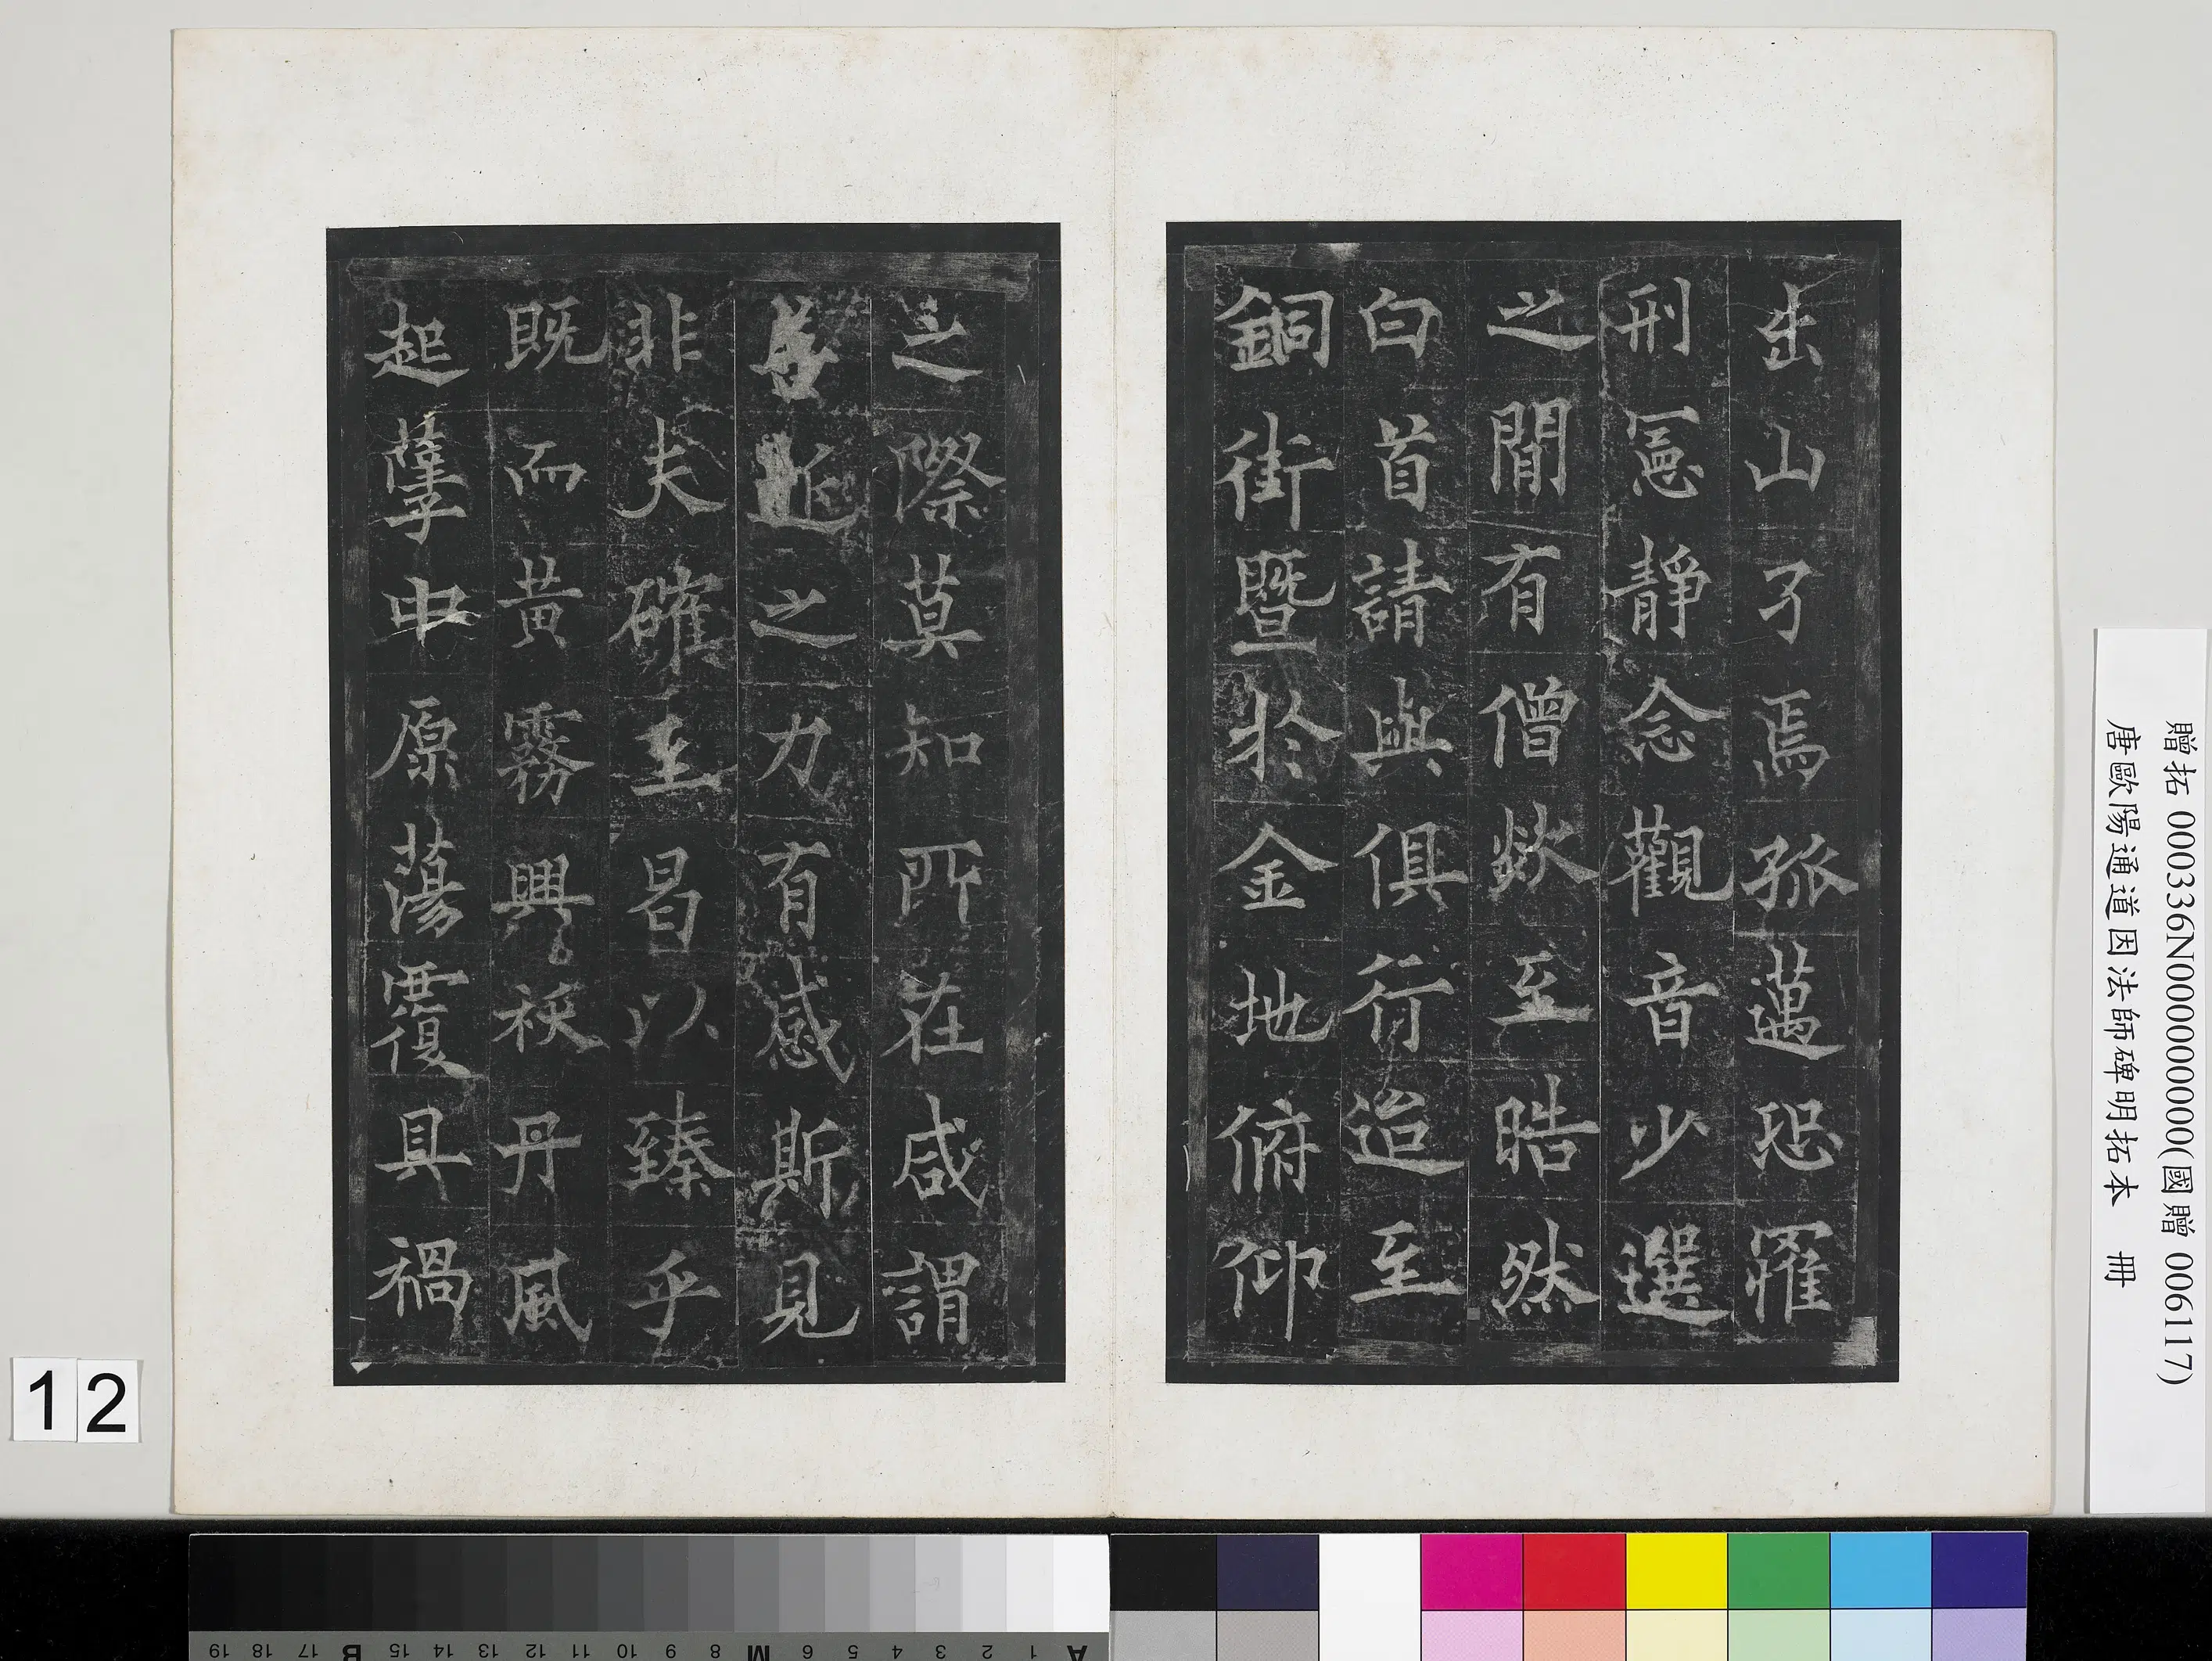 出山孑焉孤邁恐罹
刑憲靜念觀音少選
之閒有僧欻至晧然
白首請與俱行迨至
銅街暨於金地俯仰
之際莫知所在咸謂
之力有感斯見
非夫確至昌以臻乎
既而黃霧興祅丹風
起孽中原蕩覆具禍
贈拓 000336N000000000(國贈 006117)
唐歐陽通道因法師碑明拓本 冊
12
A 1 2 3 4 5 6 M 8 9 10 11 12 13 14 15 B 17 18 19